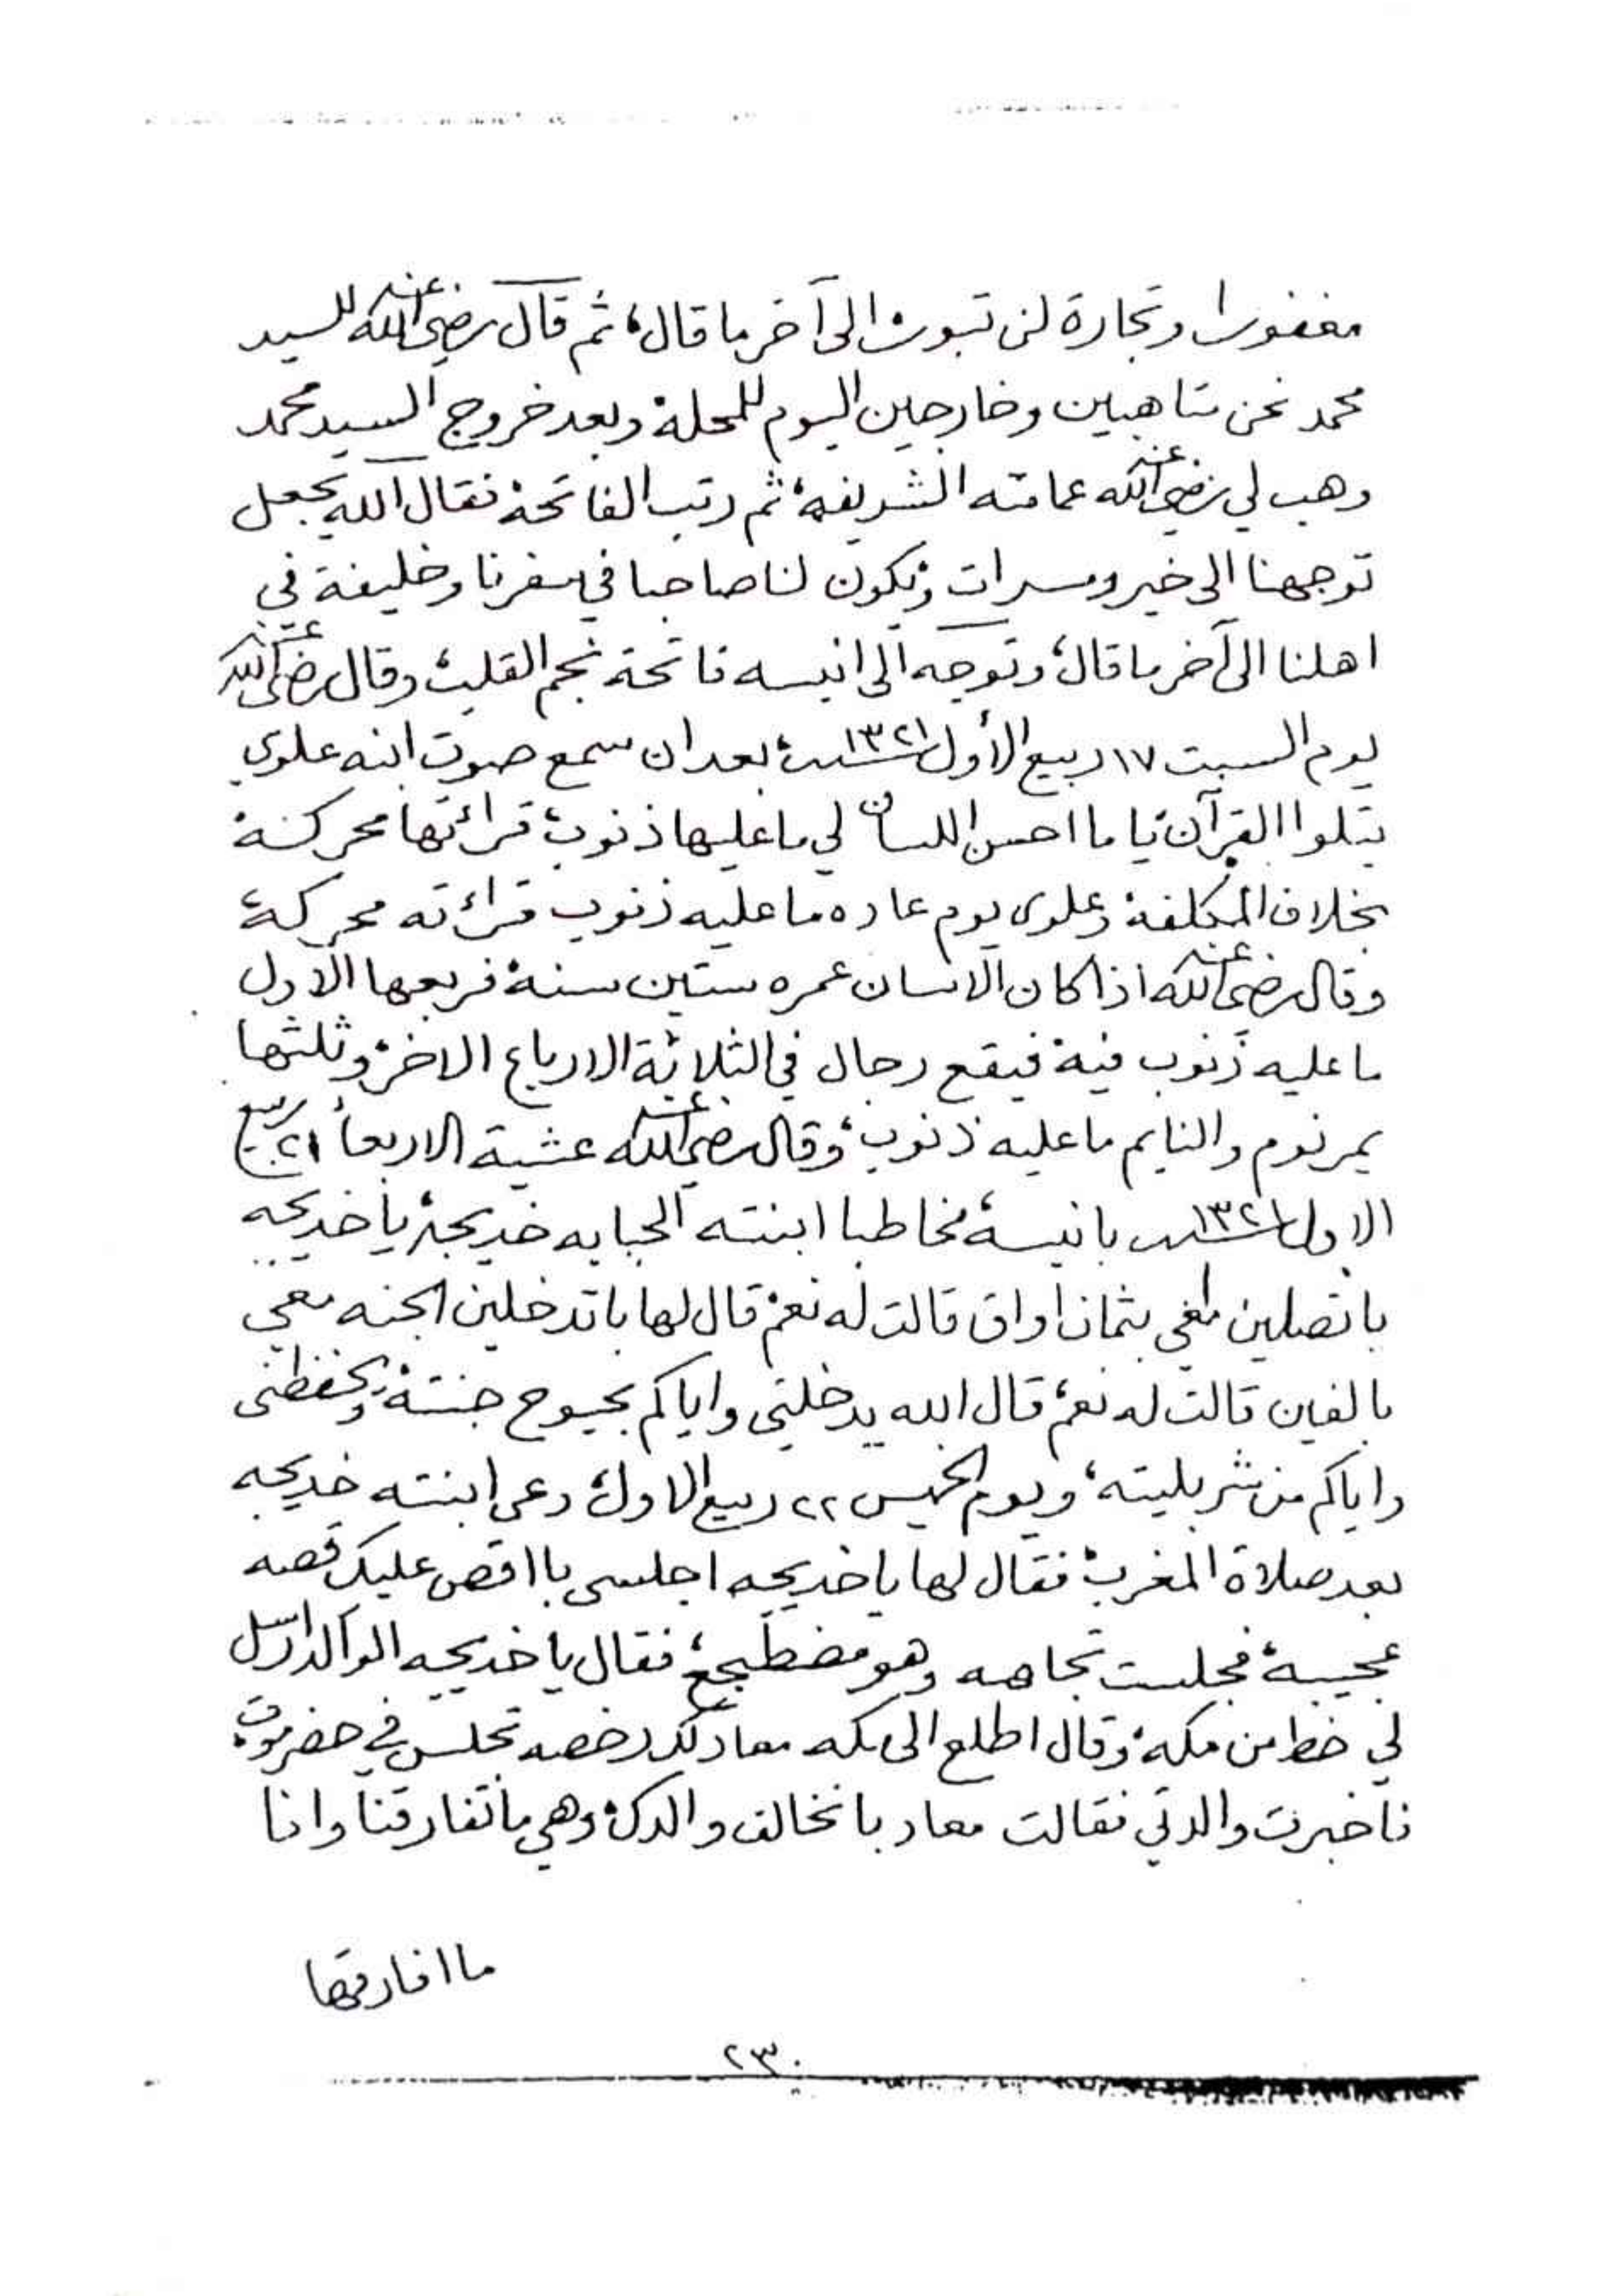 مغفورا وتجارة لن تبور، الى آخر ما قال، ثم قال رضي الله عنه للسيد
محمد نحن متاهبين وخارجين اليوم للمحلة، وبعد خروج السيد محمد
وهب لي رضي الله عنه عمامته الشريفة، ثم رتب الفاتحة فقال الله يجعل
توجهنا الى خير ومسرات، ويكون لنا صاحبا في سفرنا وخليفة في
اهلنا الى آخر ما قال، وتوجه الى انيسه فاتحة نجم القليب، وقال رضي الله عنه
يوم السبت ١٧ ربيع الأول سنة ١٣٢١، بعد ان سمع صوت ابنه علوي
يتلوا القرآن، يا ما احسن اللسان لي ما عليها ذنوب، قرائتها محركة
بخلاف المكلفة، وعلوى يوم عاده ما عليه ذنوب قرائته محركة،
وقال رضي الله عنه اذا كان الانسان عمره ستين سنة، فربعها الاول
ما عليه ذنوب فيه، فيقع رجال في الثلاثة الارباع الاخر، وثلثها
يمر نوم والنايم ما عليه ذنوب، وقال رضي الله عنه عشية الاربعاء ٢١ ربيع
الاول سنة ١٣٢١ بانيسة، مخاطبا ابنته الحبابه خديجة، يا خديجه
با تصلين معي بثمان اواق قالت له نعم، قال لها با تدخلين الجنه معي
بالفين قالت له نعم، قال الله يدخلني واياكم بحبوح جنته، ويحفظنى
واياكم من شر بليته، ويوم الخميس ٢٢ ربيع الاول، دعى ابنته خديجه
بعد صلاة المغرب، فقال لها يا خديجه اجلسى با اقص عليك قصه
عجيبة، فجلست تجاهه وهو مضطجع، فقال يا خديجه الوالد ارسل
لي خط من مكة، وقال اطلع الى مكه معاد لك رخصه تجلس في حضرموت،
فاخبرت والدتي فقالت معاد با نخالف والدك، وهي ما تفارقنا وانا
ما افارقها
٢٣٠